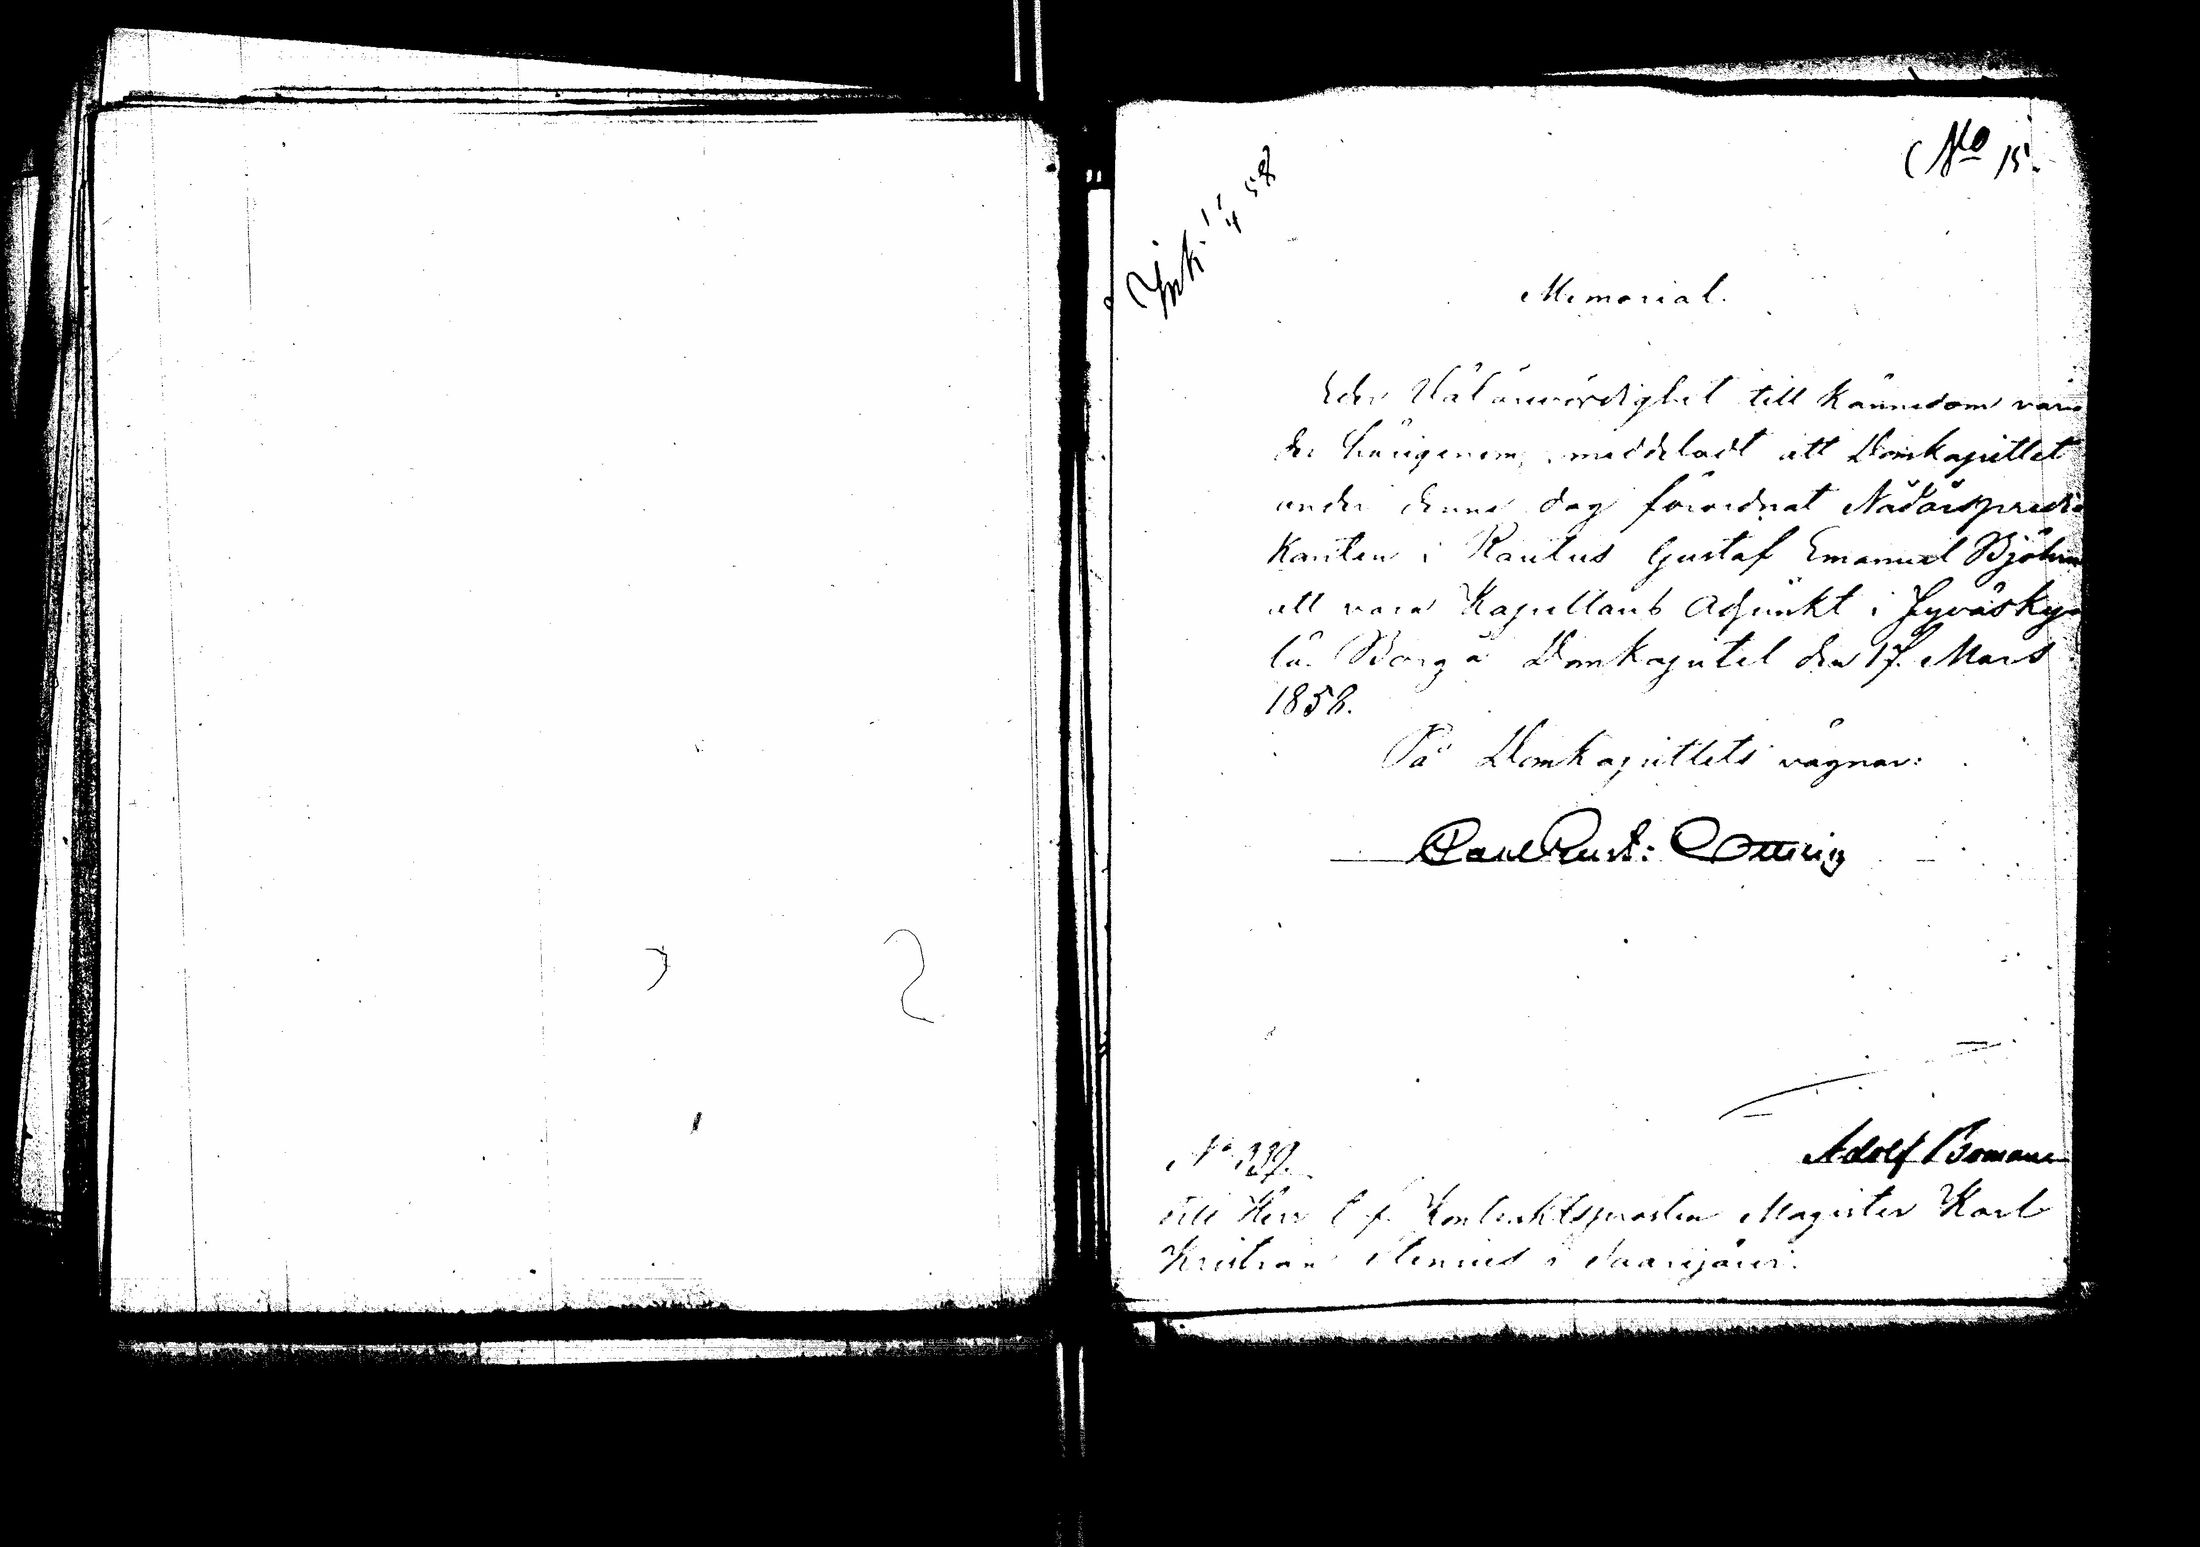 No 15.
Ink. 1/4 58
Memorial.
Eder Välärevördighet till kännedom var
der härigenom meddeladt att Domkapitlet
under denna dag förordnat Nådårspredi
kanten i Rautus Gustaf Emanuel Björkm
att vara Kapellans Adjunkt i Jyväsky
lä. Borgå Domkapitel den 17. Mars
1858.
På Domkapitlets vägnar:
Adolf Boman
No 339.
till Herr Kontraktsprosten Magister Karl
Kristian Stenius i Saarijärvi.